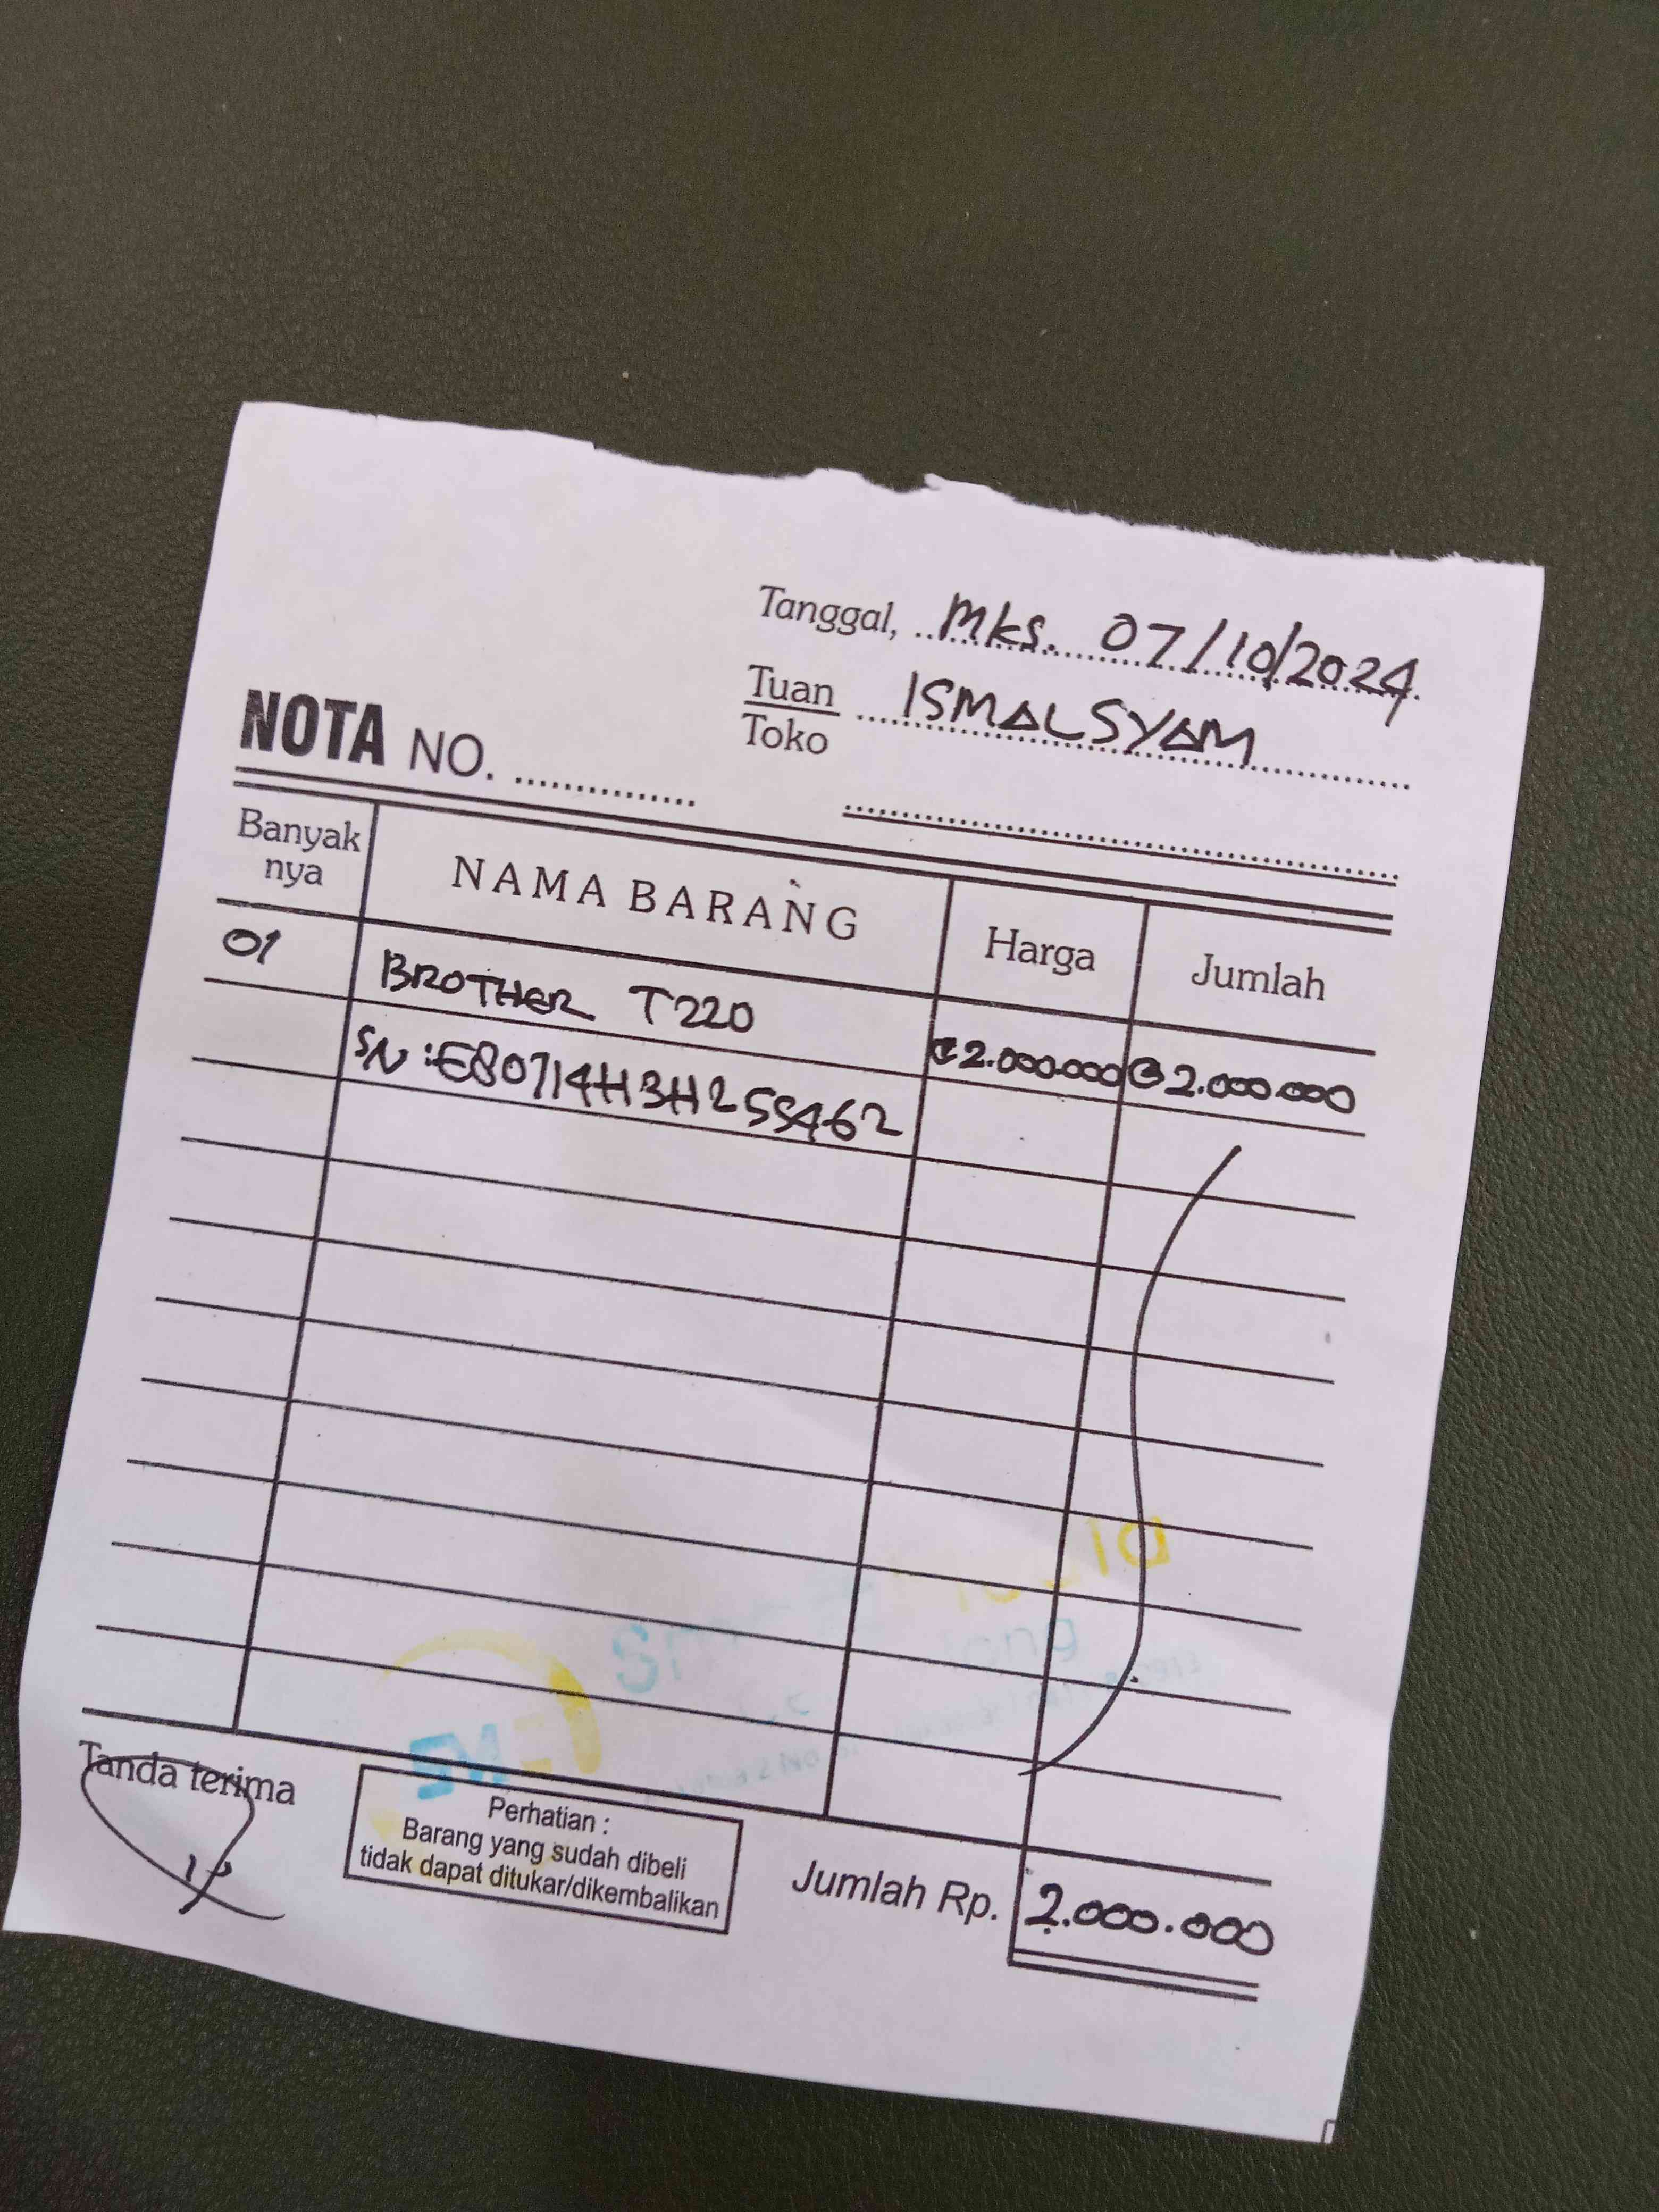 Tanggal, Mks. 07/10/2024
Tuan ISMALSYAM
Toko
NOTA NO.
Banyak
nya
NAMA BARANG
Harga
Jumlah
01 BROTHER T220 @ 2.000.000 @ 2.000.000
SN : E80714H3H255462
Tanda terima
Perhatian :
Barang yang sudah dibeli
tidak dapat ditukar/dikembalikan
Jumlah Rp. 2.000.000